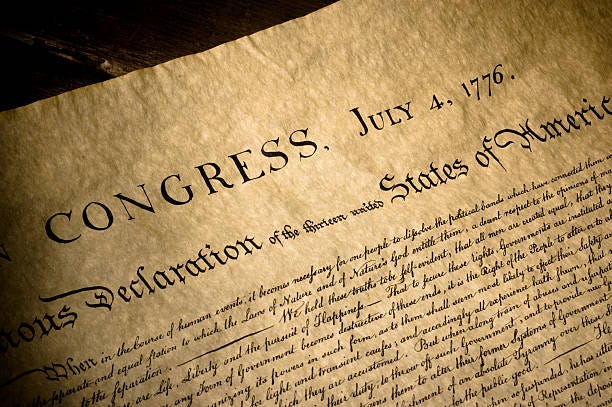 N CONGRESS, JULY 4, 1776.
mous Declaration of the thirteen united States of Americ
When in the course of human events, it becomes necessary for one people to dissolve the political bands which have connected them
the separate and equal station to which the Laws of Nature and of Nature's God entitle them, a decent respect to the opinions of
to the separation. — We hold these truths to be self-evident, that all men are created equal, that
are Life, Liberty and the pursuit of Happiness — That to secure these rights, Governments are instituted
any Form of Government becomes destructive of these ends, it is the Right of the People to alter or to
its powers in such form, as to them shall seem most likely to effect their Safety
for light and transient causes; and accordingly all experience hath shewn, that
they are accustomed. But when a long train of abuses and
their duty, to throw off such Government, and to provide new
them to alter their former Systems of Government
an absolute Tyranny over these
for the public good.